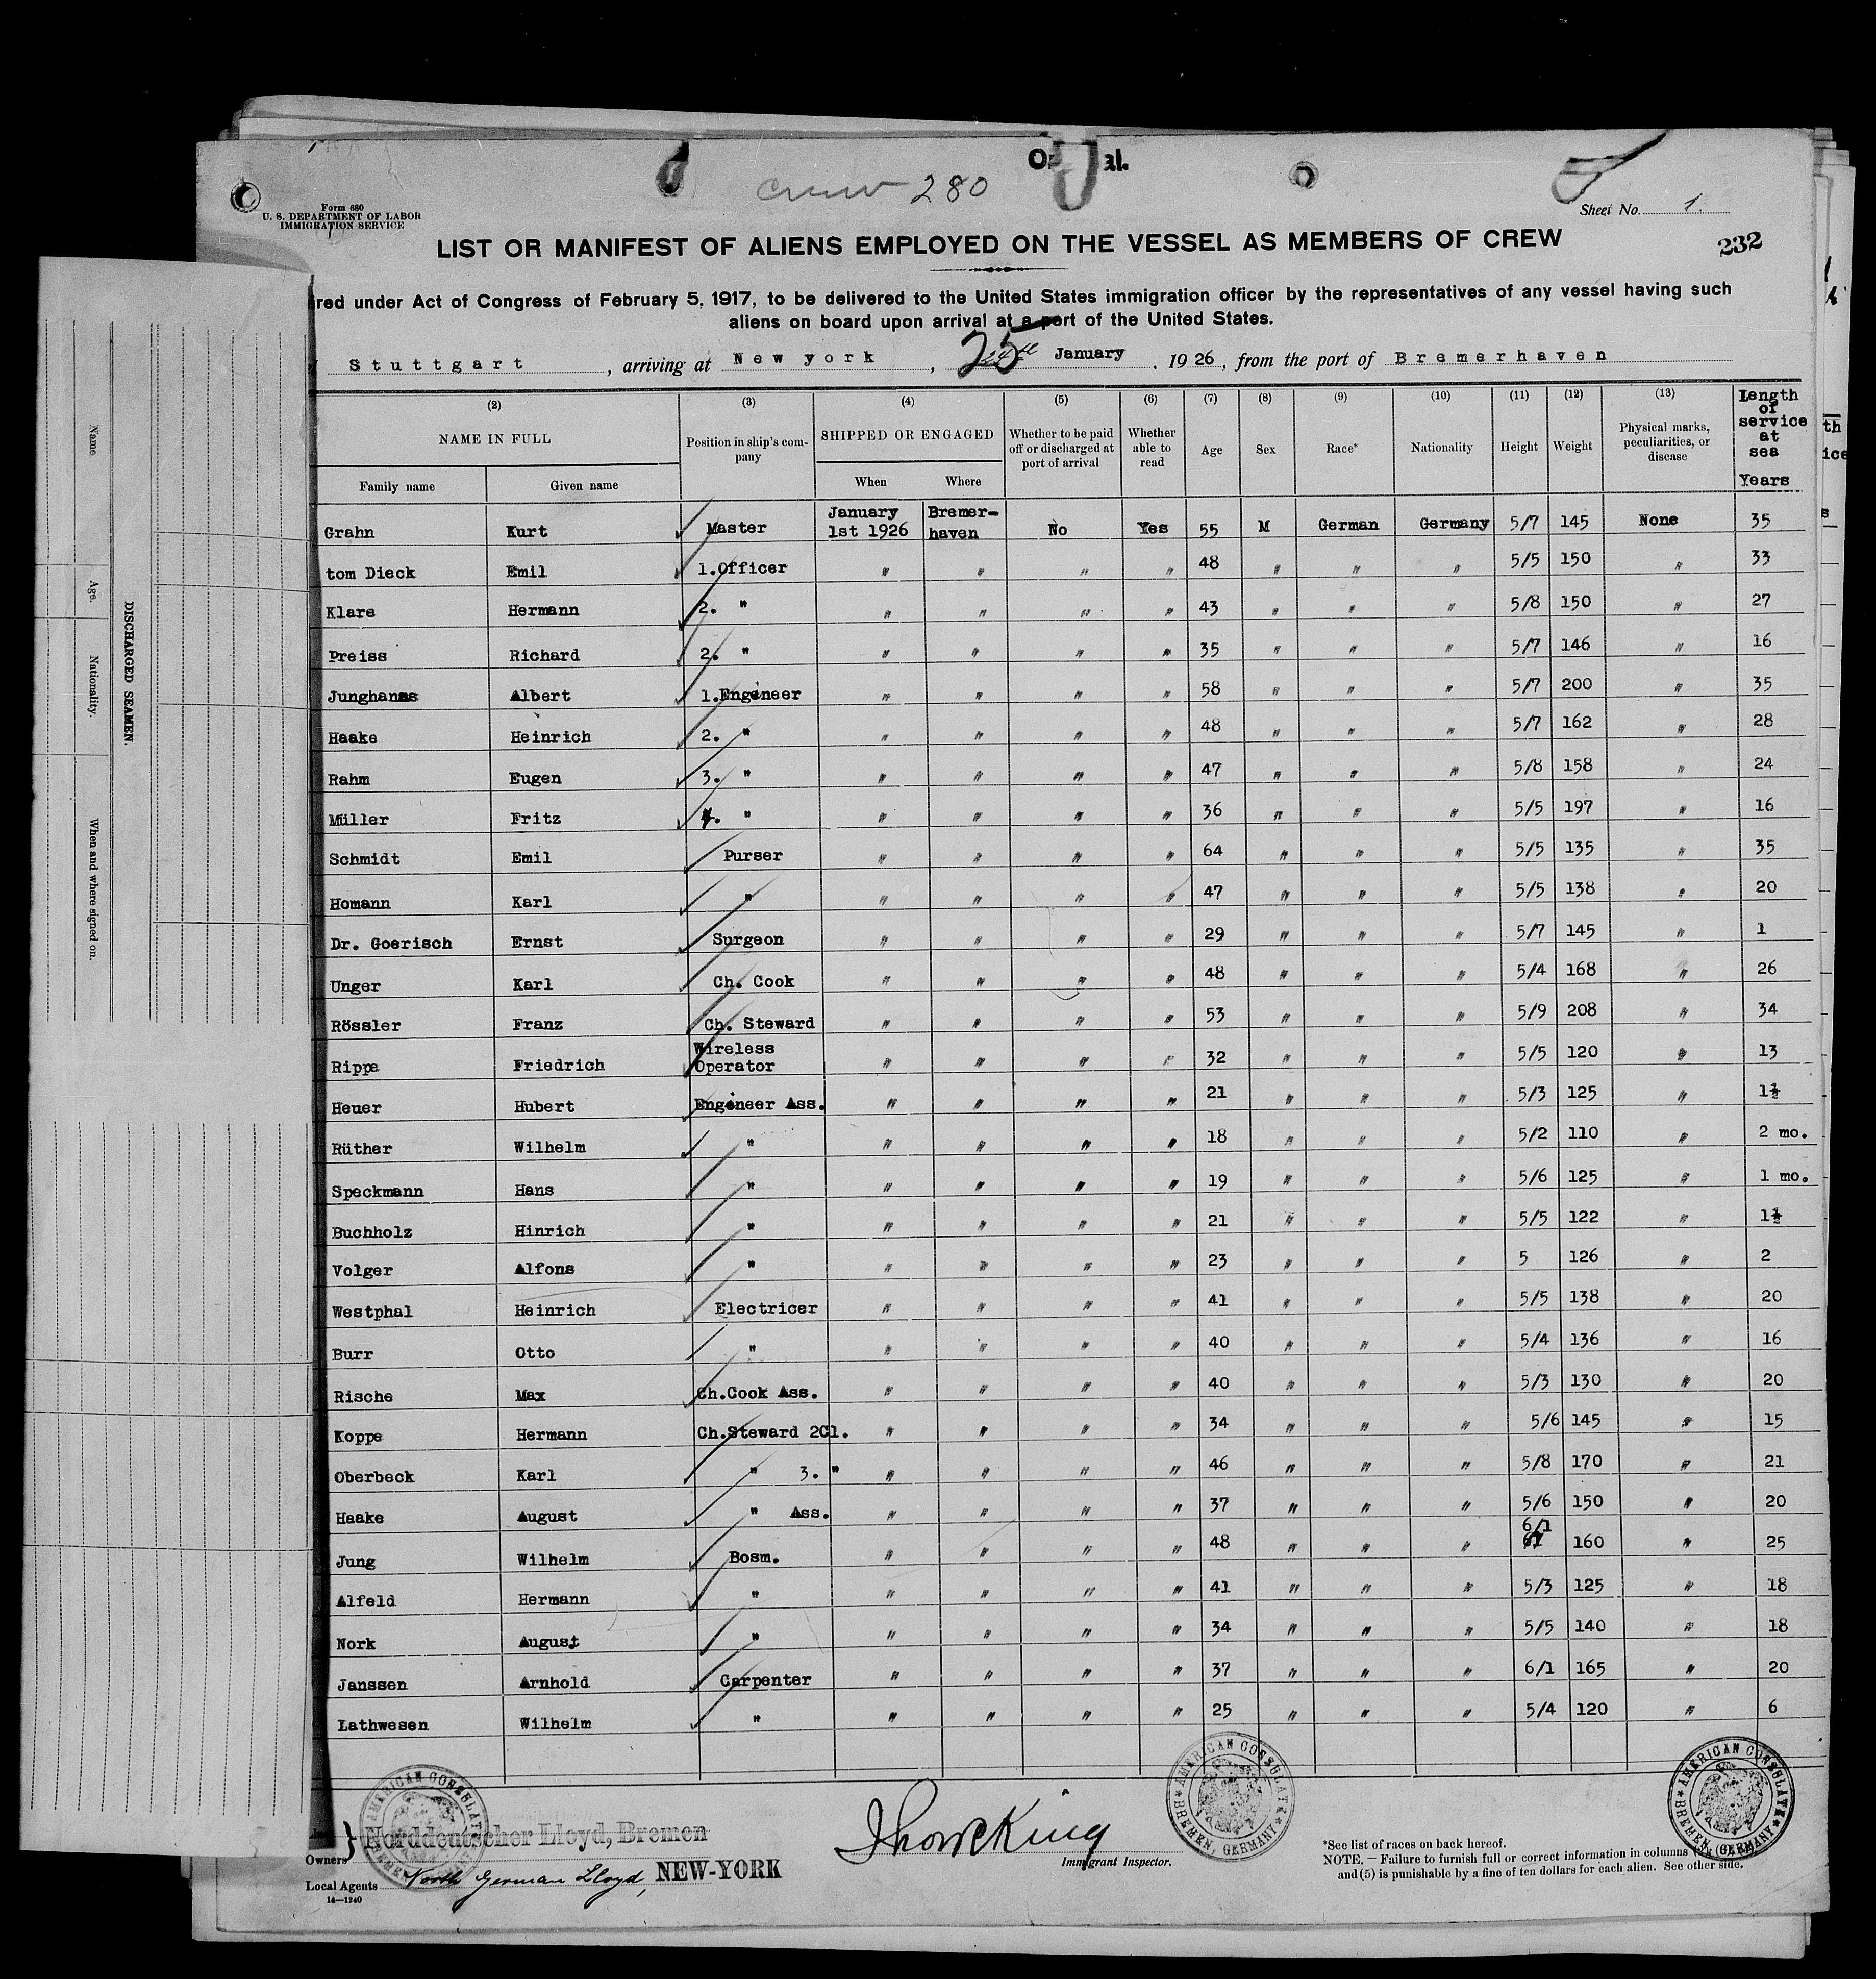 crew 280
Form 680
U. S. DEPARTMENT OF LABOR
IMMIGRATION SERVICE
Sheet No. 1.
LIST OR MANIFEST OF ALIENS EMPLOYED ON THE VESSEL AS MEMBERS OF CREW
232
red under Act of Congress of February 5, 1917, to be delivered to the United States immigration officer by the representatives of any vessel having such
aliens on board upon arrival at a port of the United States.
Stuttgart, arriving at New york, 25 January, 1926, from the port of Bremerhaven
(2) (3) (4) (5) (6) (7) (8) (9) (10) (11) (12) (13)
NAME IN FULL
Family name Given name
Position in ship's company
SHIPPED OR ENGAGED
When Where
Whether to be paid off or discharged at port of arrival
Whether able to read
Age Sex Race* Nationality Height Weight
Physical marks, peculiarities, or disease
Length of service at sea Years
Grahn Kurt Master January 1st 1926 Bremer-haven No Yes 55 M German Germany 5/7 145 None 35
tom Dieck Emil 1.Officer " " " " 48 " " " 5/5 150 " 33
Klare Hermann 2. " " " " " 43 " " " 5/8 150 " 27
Preiss Richard 2. " " " " " 35 " " " 5/7 146 " 16
Junghanss Albert 1.Engineer " " " " 58 " " " 5/7 200 " 35
Haake Heinrich 2. " " " " " 48 " " " 5/7 162 " 28
Rahm Eugen 3. " " " " " 47 " " " 5/8 158 " 24
Müller Fritz 4. " " " " " 36 " " " 5/5 197 " 16
Schmidt Emil Purser " " " " 64 " " " 5/5 135 " 35
Homann Karl " " " " " 47 " " " 5/5 138 " 20
Dr. Goerisch Ernst Surgeon " " " " 29 " " " 5/7 145 " 1
Unger Karl Ch. Cook " " " " 48 " " " 5/4 168 " 26
Rössler Franz Ch. Steward " " " " 53 " " " 5/9 208 " 34
Rippe Friedrich Wireless Operator " " " " 32 " " " 5/5 120 " 13
Heuer Hubert Engineer Ass. " " " " 21 " " " 5/3 125 " 1½
Rüther Wilhelm " " " " " 18 " " " 5/2 110 " 2 mo.
Speckmann Hans " " " " " 19 " " " 5/6 125 " 1 mo.
Buchholz Hinrich " " " " " 21 " " " 5/5 122 " 1½
Volger Alfons " " " " " 23 " " " 5 126 " 2
Westphal Heinrich Electricer " " " " 41 " " " 5/5 138 " 20
Burr Otto " " " " " 40 " " " 5/4 136 " 16
Rische Max Ch.Cook Ass. " " " " 40 " " " 5/3 130 " 20
Koppe Hermann Ch.Steward 2Cl. " " " " 34 " " " 5/6 145 " 15
Oberbeck Karl " 3. " " " " " 46 " " " 5/8 170 " 21
Haake August " Ass. " " " " 37 " " " 5/6 150 " 20
Jung Wilhelm Bosm. " " " " 48 " " " 6/1 160 " 25
Alfeld Hermann " " " " " 41 " " " 5/3 125 " 18
Nork August " " " " " 34 " " " 5/5 140 " 18
Janssen Arnhold Carpenter " " " " 37 " " " 6/1 165 " 20
Lathwesen Wilhelm " " " " " 25 " " " 5/4 120 " 6
Norddeutscher Lloyd, Bremen
Owners
Local Agents North German Lloyd, NEW-YORK
14—1240
Immigrant Inspector.
AMERICAN CONSULATE
BREMEN, GERMANY
AMERICAN CONSULATE
BREMEN, GERMANY
AMERICAN CONSULATE
*See list of races on back hereof.
NOTE.— Failure to furnish full or correct information in columns
and (5) is punishable by a fine of ten dollars for each alien. See other side.
DISCHARGED SEAMEN.
Name
Age.
Nationality.
When and where signed on.